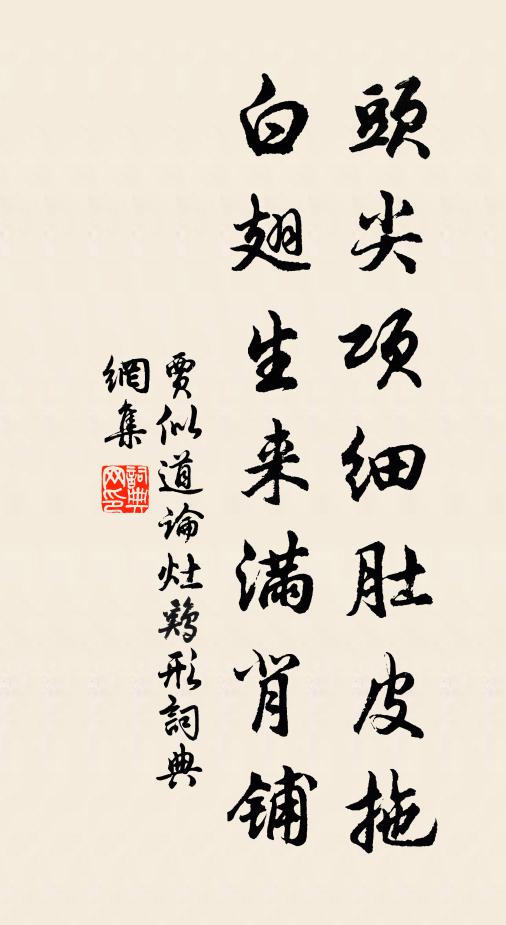 頭尖项细肚皮拖
白翅生来满背铺
賈似道論灶鶏形詞典
網集
詞典
网印